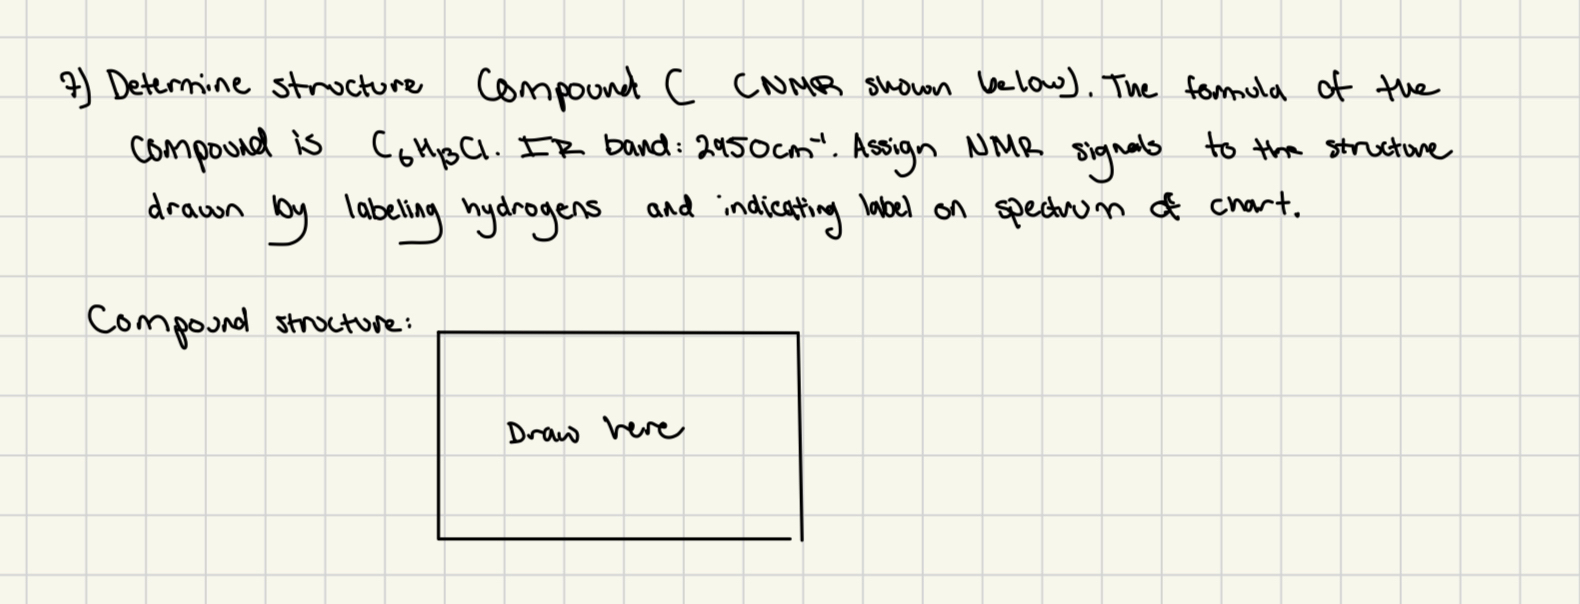 7) Determine structure Compound C (NMR shown below). The formula of the
compound is C₆H₁₃Cl. IR band: 2950cm⁻¹. Assign NMR signals to the structure
drawn by labeling hydrogens and indicating label on spectrum & chart.
Compound structure:
Draw here